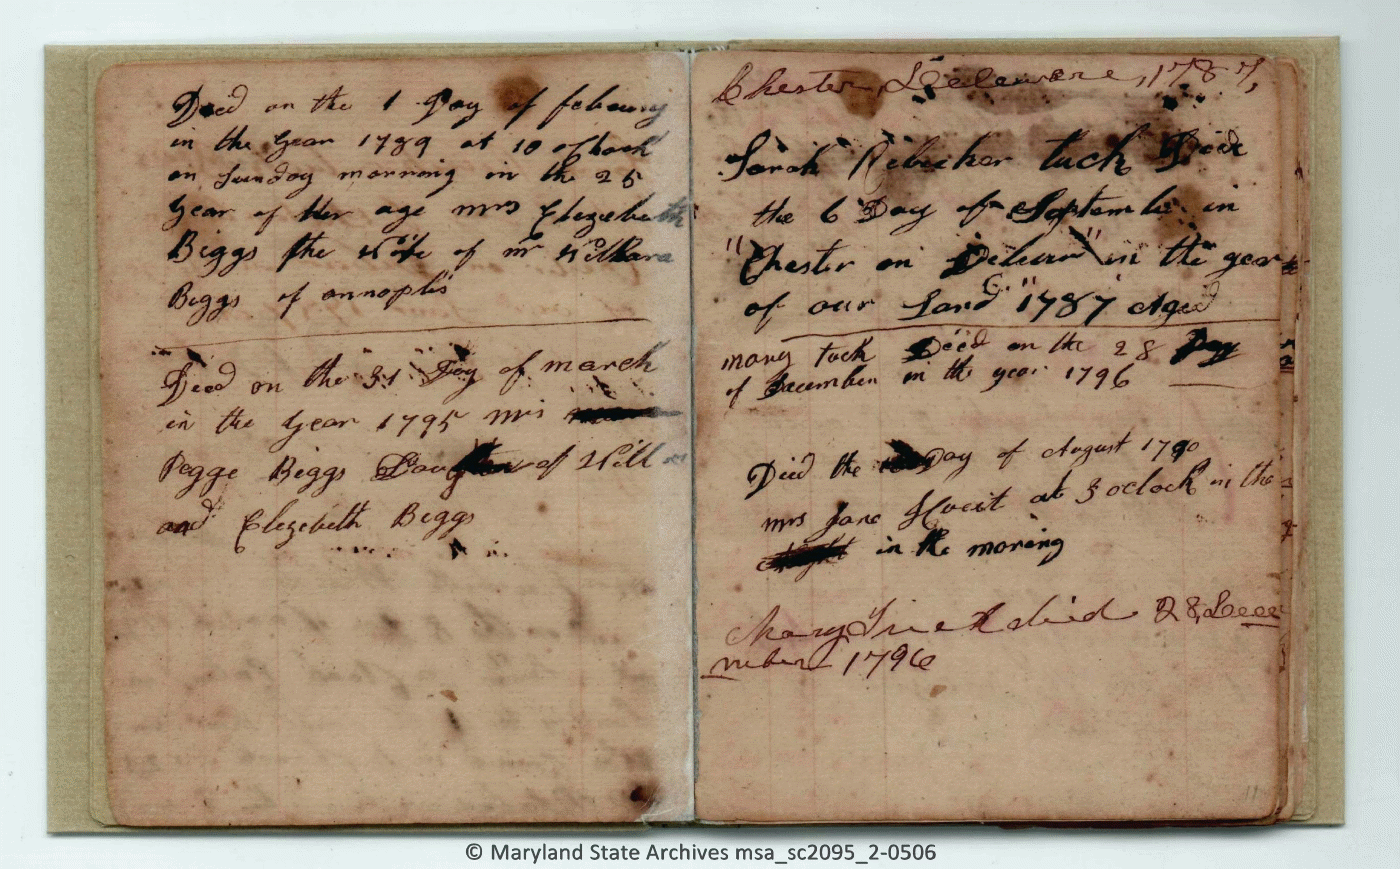 Died on the 1 Day of febeury
in the year 1789 at 10 oClock
on Sunday morning in the 25
year of Her age mrs Elezebeth
Biggs the Wife of mr William
Biggs of annoplis
Died on the 31 Day of march
in the year 1795 mrs
Pegge Biggs Daughter of Will
and Elezebeth Biggs
Chester, Deleware, 1787,
Sarah Rebecker tuck Died
the 6 Day of September in
"Chester on Deleuar" in the year
of our Lord "1787 Aged
mary tuck Died on the 28 Day
of December in the year 1796
Died the Day of August 1790
mrs Jane at 3 oclock in the
in the moring
Mary Tuck died 28, Dece
mber 1796
11
© Maryland State Archives msa_sc2095_2-0506